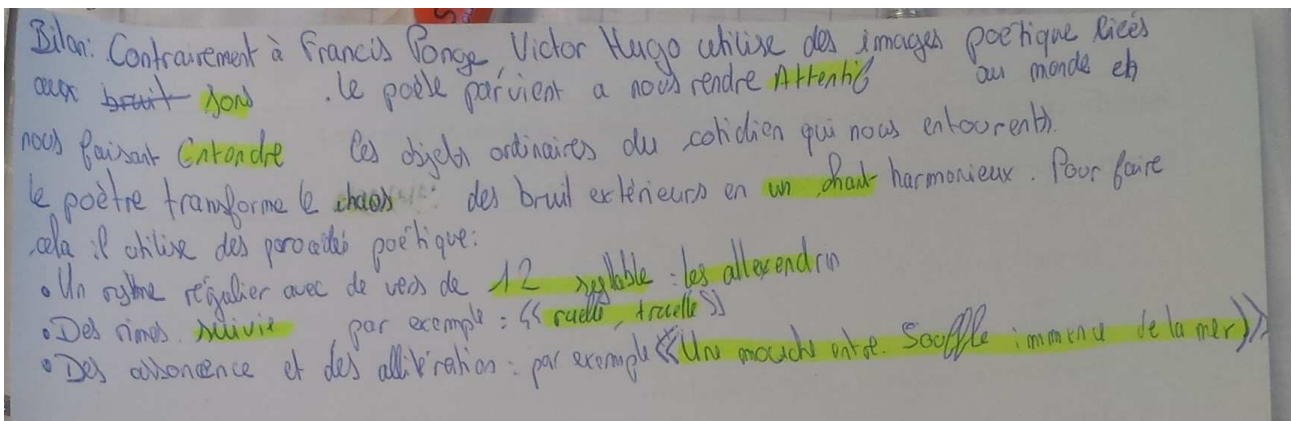 Bilan: Contrairement à Francis Ponge, Victor Hugo utilise des images poétique liées
aux bruit sons . le poète parvient a nous rendre Attentif au monde en
nous faisant Entendre les objets ordinaires du cotidien qui nous entourents.
le poètre transforme le chaos des bruit extérieurs en un chant harmonieux. Pour faire
cela il utilise des poétique:
• Un régulier avec de vers de 12 syllable : les allexendrin
• Des rimes suivie par exemple : << ruelle, truelle >>
• Des assonence et des allitération : par exemple << Une mouche entre. Souffle immence de la mer >>